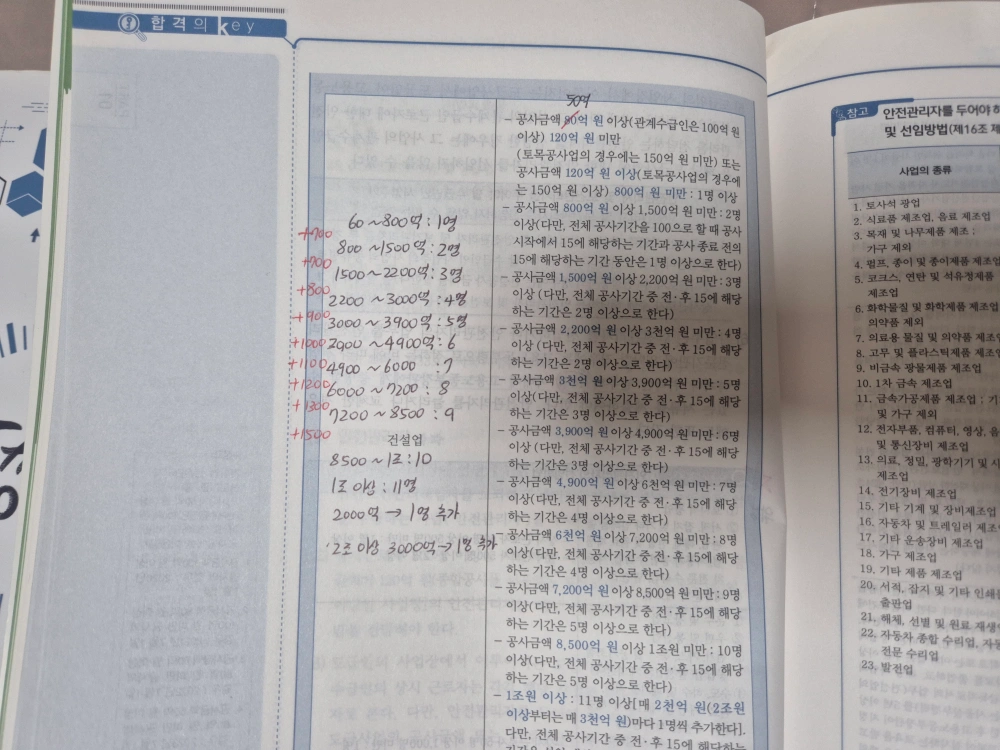 합격의 key
50억
- 공사금액 80억 원 이상(관계수급인은 100억 원
이상) 120억 원 미만
(토목공사업의 경우에는 150억 원 미만) 또는
공사금액 120억 원 이상(토목공사업의 경우에
는 150억 원 이상) 800억 원 미만 : 1명 이상
- 공사금액 800억 원 이상 1,500억 원 미만 : 2명
이상(다만, 전체 공사기간을 100으로 할 때 공사
시작에서 15에 해당하는 기간과 공사 종료 전의
15에 해당하는 기간 동안은 1명 이상으로 한다)
- 공사금액 1,500억 원 이상 2,200억 원 미만 : 3명
이상(다만, 전체 공사기간 중 전·후 15에 해당
하는 기간은 2명 이상으로 한다)
- 공사금액 2,200억 원 이상 3천억 원 미만 : 4명
이상(다만, 전체 공사기간 중 전·후 15에 해당
하는 기간은 2명 이상으로 한다)
- 공사금액 3천억 원 이상 3,900억 원 미만 : 5명
이상(다만, 전체 공사기간 중 전·후 15에 해당
하는 기간은 3명 이상으로 한다)
- 공사금액 3,900억 원 이상 4,900억 원 미만 : 6명
이상(다만, 전체 공사기간 중 전·후 15에 해당
하는 기간은 3명 이상으로 한다)
- 공사금액 4,900억 원 이상 6천억 원 미만 : 7명
이상(다만, 전체 공사기간 중 전·후 15에 해당
하는 기간은 4명 이상으로 한다)
- 공사금액 6천억 원 이상 7,200억 원 미만 : 8명
이상(다만, 전체 공사기간 중 전·후 15에 해당
하는 기간은 4명 이상으로 한다)
- 공사금액 7,200억 원 이상 8,500억 원 미만 : 9명
이상(다만, 전체 공사기간 중 전·후 15에 해당
하는 기간은 5명 이상으로 한다)
- 공사금액 8,500억 원 이상 1조원 미만 : 10명
이상(다만, 전체 공사기간 중 전·후 15에 해당
하는 기간은 5명 이상으로 한다)
- 1조원 이상 : 11명 이상[매 2천억 원(2조원
이상부터는 매 3천억 원)마다 1명씩 추가한다].
다만, 전체 공사기간 중 전·후 15에 해당하는
60~800억 : 1명
+700
800~1500억 : 2명
+700
1500~2200억 : 3명
+800
2200~3000억 : 4명
+900
3000~3900억 : 5명
+1000
3900~4900억 : 6
+1100
4900~6000 : 7
+1200
6000~7200 : 8
+1300
7200~8500 : 9
+1500
건설업
8500~1조 : 10
1조 이상 : 11명
2000억 → 1명 추가
· 2조 이상 3000억 → 1명 추가
참고
안전관리자를 두어야 할
및 선임방법(제16조 제
사업의 종류
1. 토사석 광업
2. 식료품 제조업, 음료 제조업
3. 목재 및 나무제품 제조 ;
가구 제외
4. 펄프, 종이 및 종이제품 제조업
5. 코크스, 연탄 및 석유정제품
제조업
6. 화학물질 및 화학제품 제조업
의약품 제외
7. 의료용 물질 및 의약품 제조
8. 고무 및 플라스틱제품 제조
9. 비금속 광물제품 제조업
10. 1차 금속 제조업
11. 금속가공제품 제조업 ; 기
및 가구 제외
12. 전자부품, 컴퓨터, 영상, 음
및 통신장비 제조업
13. 의료, 정밀, 광학기기 및 시
제조업
14. 전기장비 제조업
15. 기타 기계 및 장비제조업
16. 자동차 및 트레일러 제조
17. 기타 운송장비 제조업
18. 가구 제조업
19. 기타 제품 제조업
20. 서적, 잡지 및 기타 인쇄물
출판업
21. 해체, 선별 및 원료 재생업
22. 자동차 종합 수리업, 자동
전문 수리업
23. 발전업